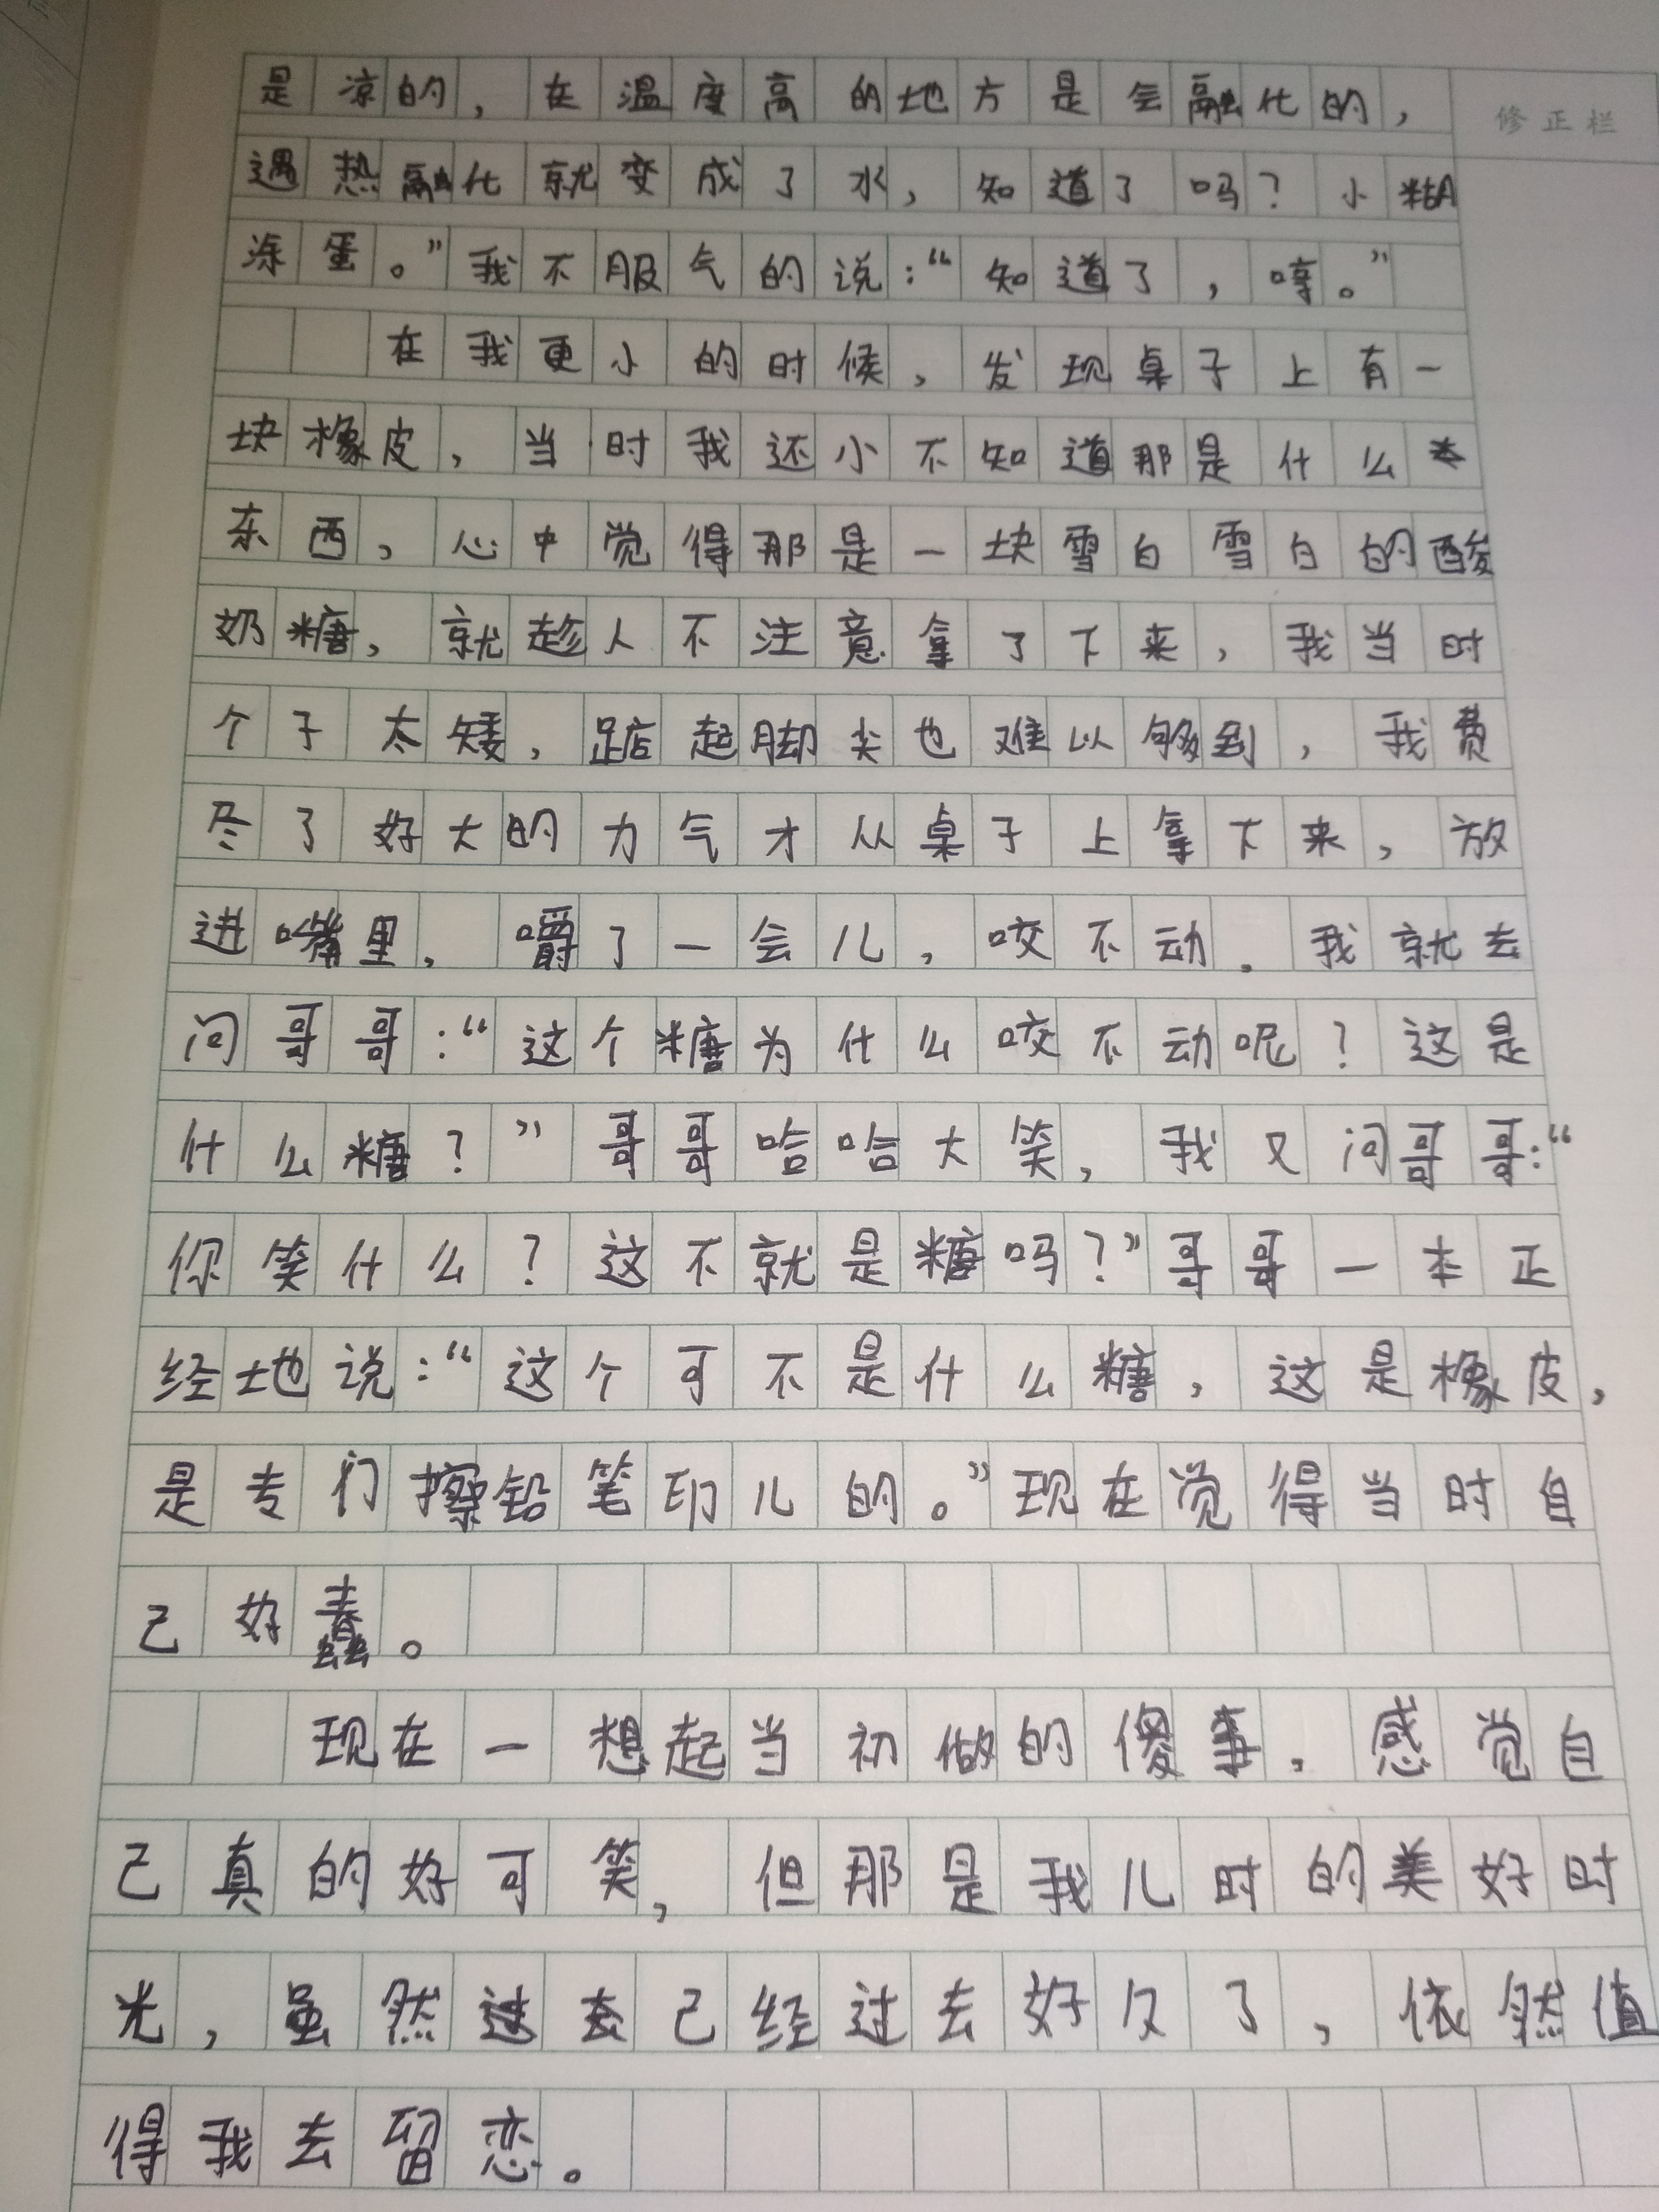 是凉的，在温度高的地方是会融化的，
修正栏
遇热融化就变成了水，知道了吗？小糊
涂蛋。”我不服气的说：“知道了，哼。”
在我更小的时候，发现桌子上有一
块橡皮，当时我还小不知道那是什么
东西，心中觉得那是一块雪白雪白的酸
奶糖，就趁人不注意拿了下来，我当时
个子太矮，踮起脚尖也难以够到，我费
尽了好大的力气才从桌子上拿下来，放
进嘴里，嚼了一会儿，咬不动。我就去
问哥哥：“这个糖为什么咬不动呢？这是
什么糖？”哥哥哈哈大笑，我又问哥哥：“
你笑什么？这不就是糖吗？”哥哥一本正
经地说：“这个可不是什么糖，这是橡皮，
是专门擦铅笔印儿的。”现在觉得当时自
己好蠢。
现在一想起当初做的傻事，感觉自
己真的好可笑，但那是我儿时的美好时
光，虽然过去己经过去好久了，依然值
得我去留恋。